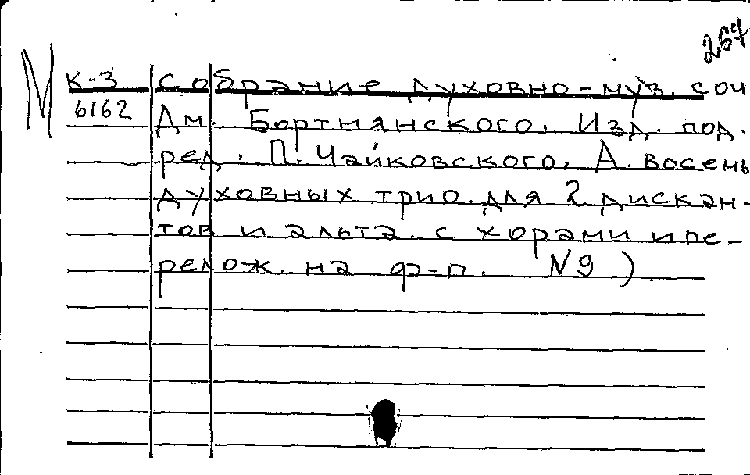 267
М
К-3 Собрание духовно-муз. соч
6162 Дм. Бортнянского. Изд. под.
ред. П. Чайковского. А. восемь
духовных трио для 2 дискан-
тов и альта с хорами и пе-
релож. на ф-п. N9)